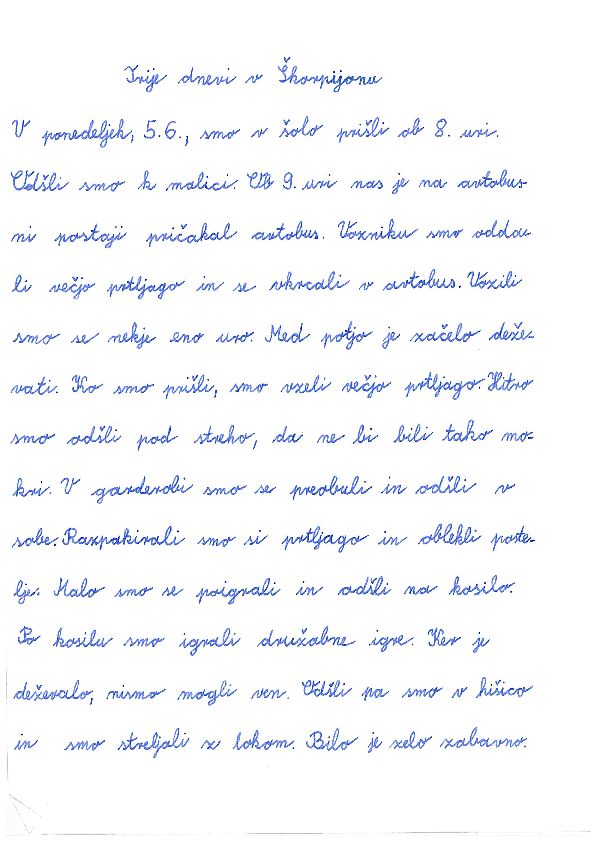 Trije dnevi v Škorpijonu
V ponedeljek, 5.6., smo v šolo prišli ob 8. uri.
Odšli smo k malici. Ob 9. uri nas je na avtobus-
ni postaji pričakal avtobus. Vozniku smo odda-
li večjo prtljago in se vkrcali v avtobus. Vozili
smo se nekje eno uro. Med potjo je začelo deže-
vati. Ko smo prišli, smo vzeli večjo prtljago. Hitro
smo odšli pod streho, da ne bi bili tako mo-
kri. V garderobi smo se preobuli in odšli v
sobe. Razpakirali smo si prtljago in oblekli poste-
lje. Malo smo se poigrali in odšli na kosilo.
Po kosilu smo igrali družabne igre. Ker je
deževalo, nismo mogli ven. Odšli pa smo v hišico
in smo streljali z lokom. Bilo je zelo zabavno.